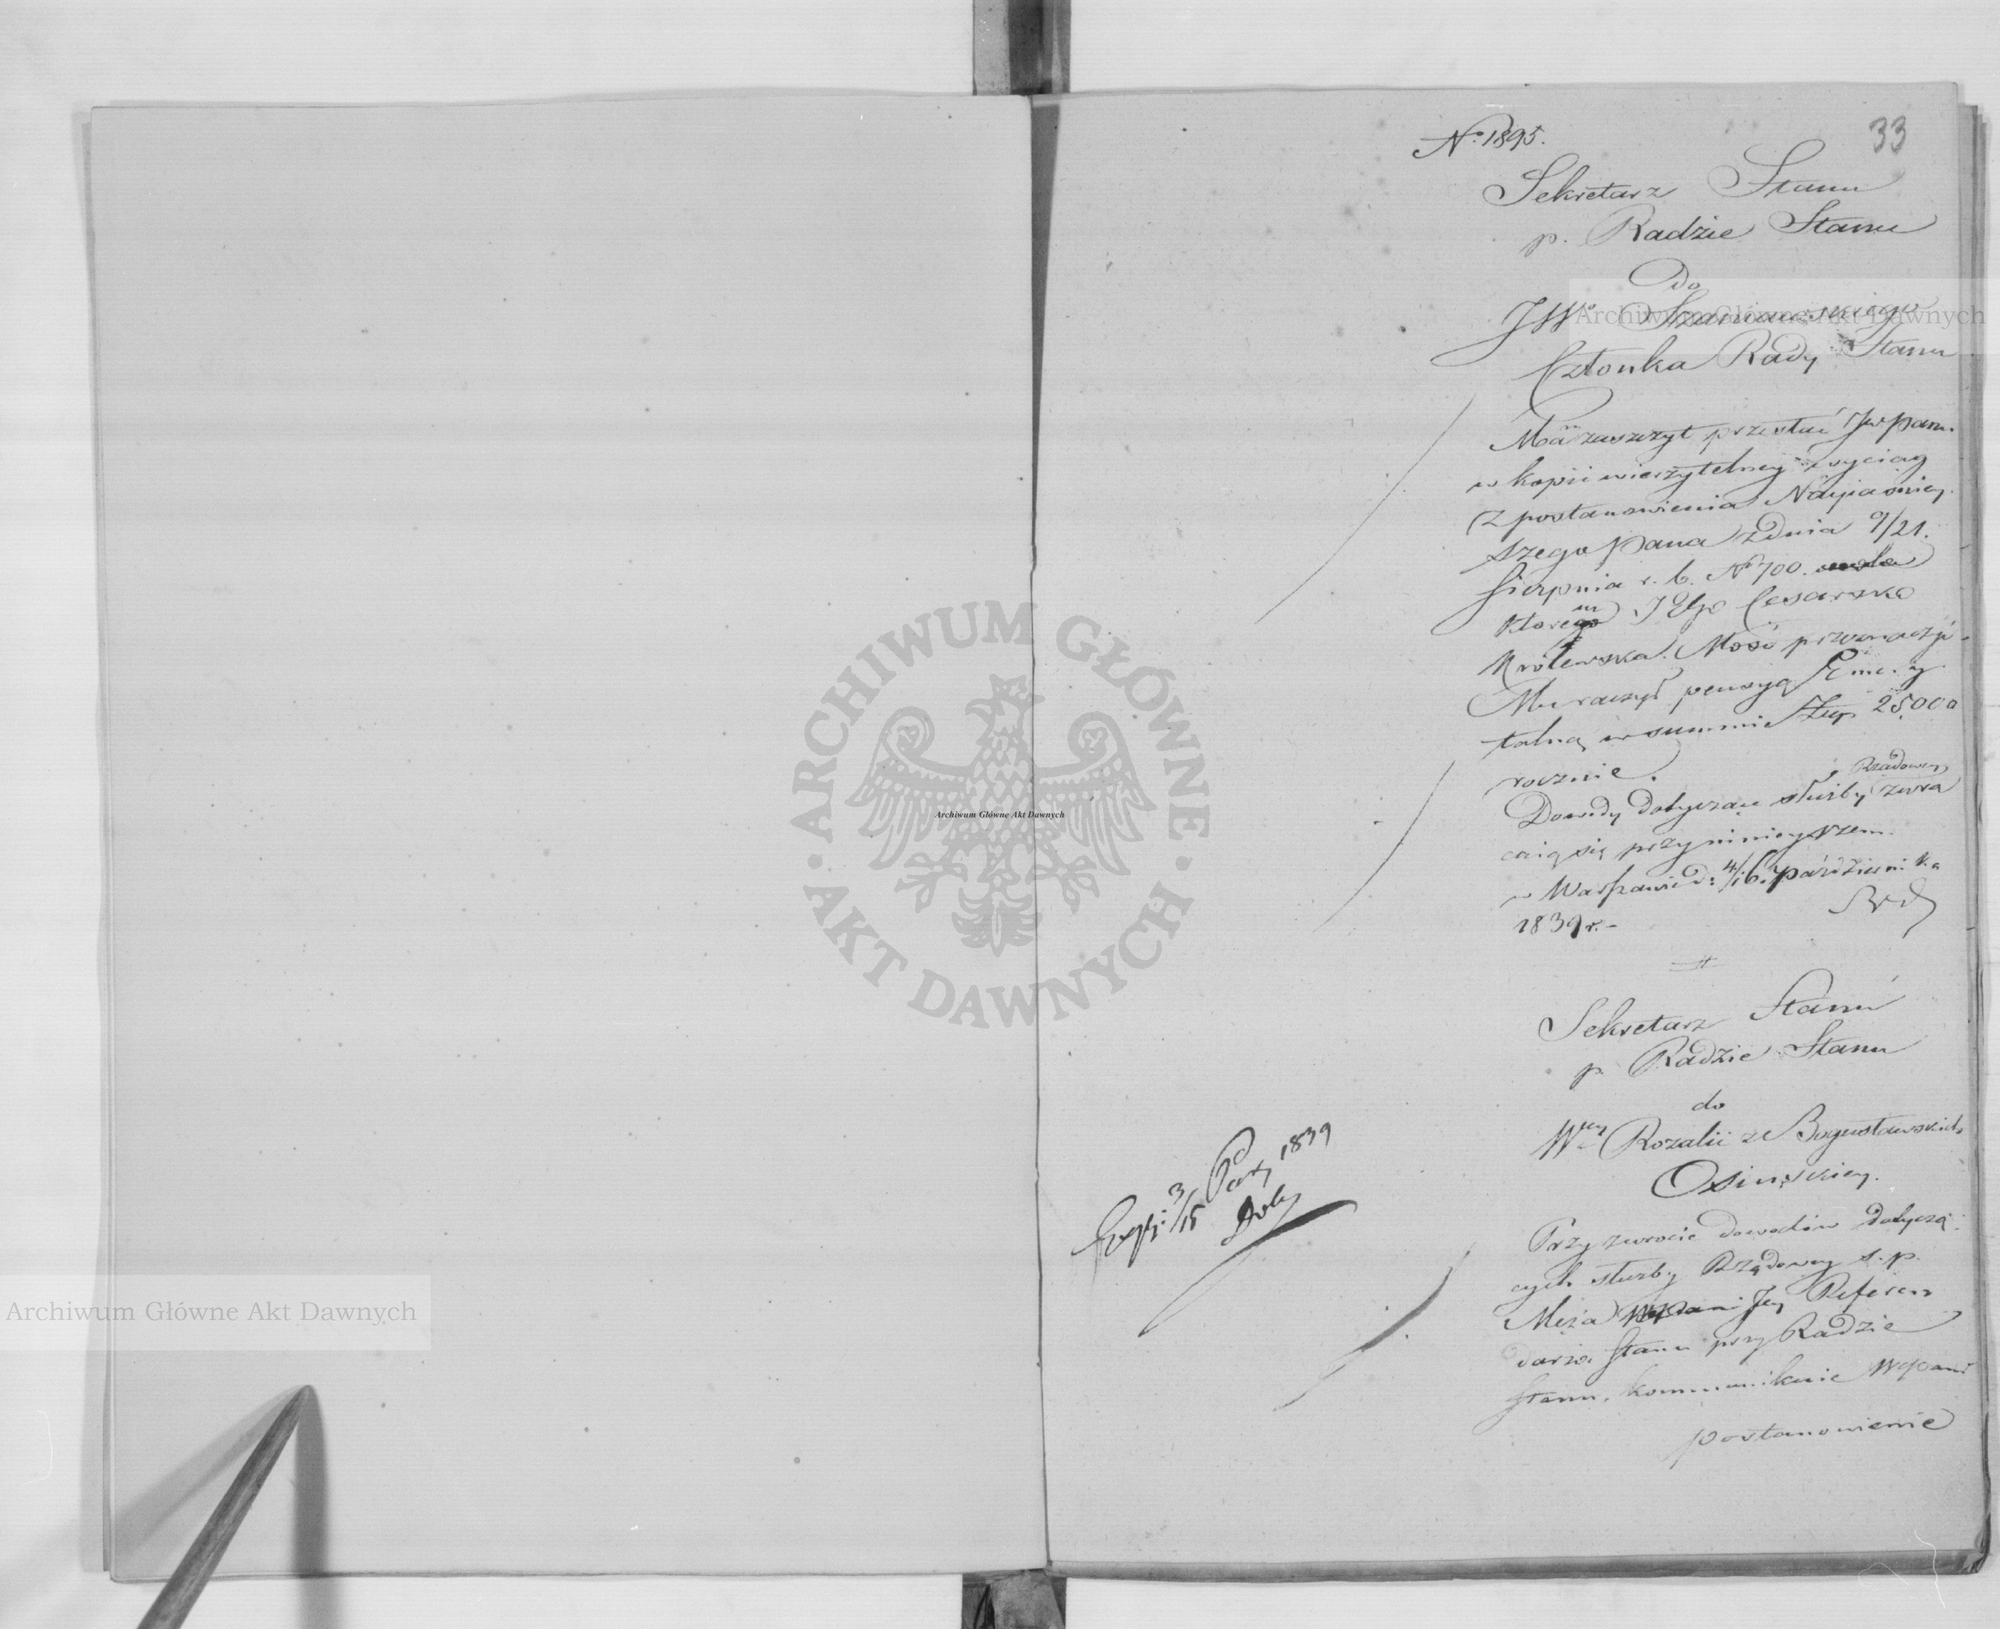 33
No 1895.
Sekretarz Stanu
p. Radzie Stanu
Do
JWo Szaniawskiego
Członka Rady Stanu
Mam zaszczyt przesłać JWPanu
w kopii wierzytelney wyciąg
z postanowienia Nayiaśniey
szego Pana z dnia 9/21.
Sierpnia r. b. No 700.
którego J Ego Cesarsko
Królewska Mość przeznaczyć
Mu raczył pensyą Emery
talną w summie Złp 25,000
rocznie.
Dowody dotyczące służby Rządowey zwra
caią się przy ninieyszem.
w Warszawie d: 4/16 października
1839 r. -
Sekretarz Stanu
p. Radzie Stanu
do
Wney Rozalii z Bogusławskich
Osińskiey.
Przy zwrocie dowodów dotyczą
cych służby Rządowey ś. p.
Męża Jey Referen
darza Stanu przy Radzie
Stanu, kommunikuie WPani
postanowienie
Exp: 3/15 Paź 1839
Archiwum Główne Akt Dawnych
Archiwum Główne Akt Dawnych
Archiwum Główne Akt Dawnych
ARCHIWUM GŁÓWNE
· AKT DAWNYCH ·